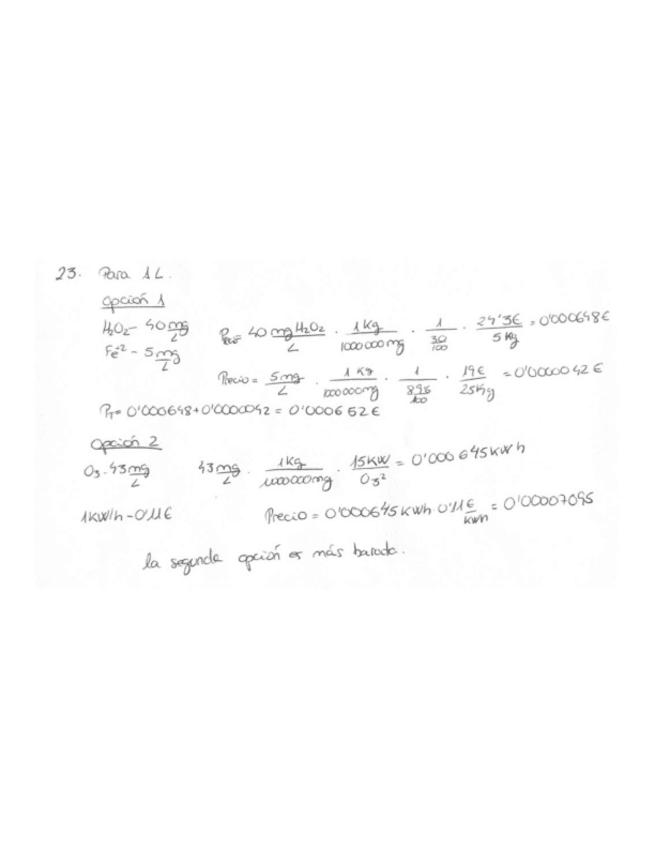 23. Para 1L.
Opción 1
H₂O₂ - 40 mg/L
Fe⁺² - 5 mg/L
40 mg H₂O₂/L · 1 Kg/1000000 mg · 1/(30/100) · 24'3€/5 Kg = 0'000648€
Precio = 5 mg/L · 1 Kg/1000000mg · 1/(895/100) · 19€/25Kg = 0'0000042€
P_T = 0'000648 + 0'0000042 = 0'000652€
Opción 2
O₃ - 43 mg/L 43 mg/L · 1Kg/1000000mg · 15KW/O₃² = 0'000645KWh
1KW/h - 0'11€ Precio = 0'000645 KWh · 0'11 €/KWh = 0'00007095
la segunda opción es más barata.